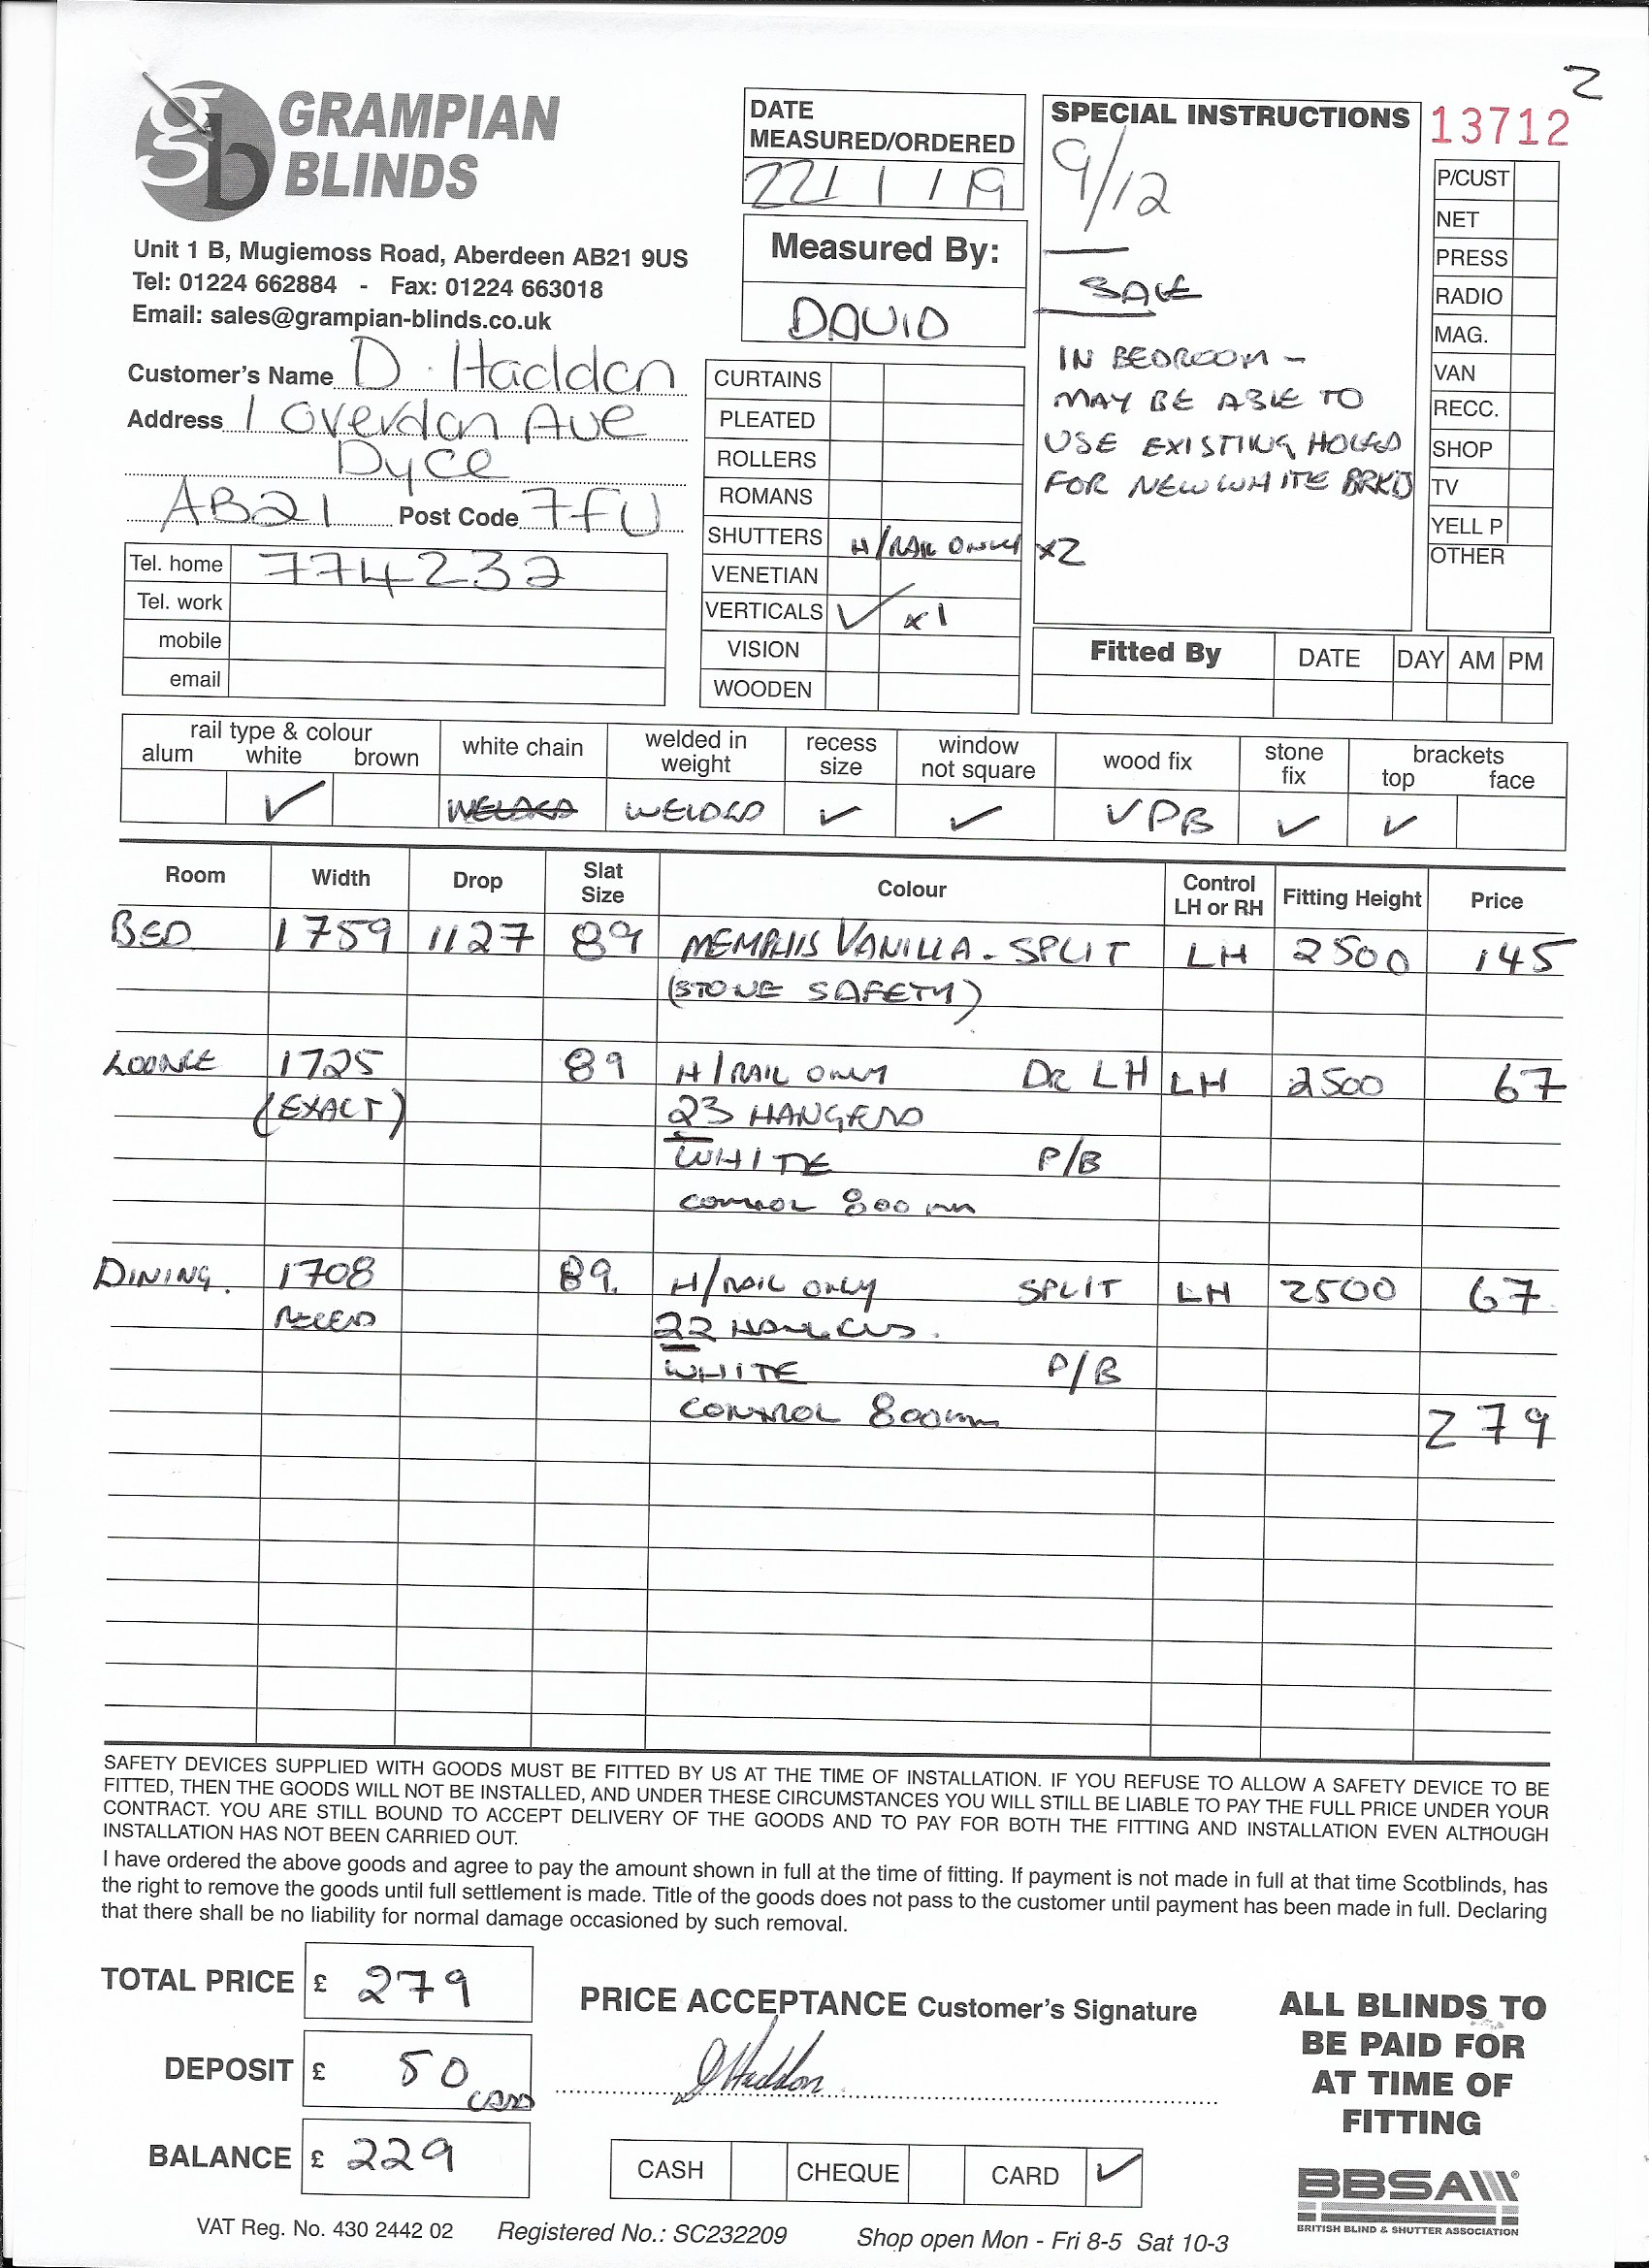 2
GRAMPIAN
BLINDS
Unit 1 B, Mugiemoss Road, Aberdeen AB21 9US
Tel: 01224 662884 - Fax: 01224 663018
Email: sales@grampian-blinds.co.uk
Customer's Name D. Haddon
Address 1 Overdon Ave
Dyce
AB21 Post Code 7FU
Tel. home 774232
Tel. work
mobile
email
DATE
MEASURED/ORDERED
22/1/19
Measured By:
DAVID
CURTAINS
PLEATED
ROLLERS
ROMANS
SHUTTERS H/RAIL ONLY x2
VENETIAN
VERTICALS ✓ x1
VISION
WOODEN
SPECIAL INSTRUCTIONS
9/12
SALE
IN BEDROOM -
MAY BE ABLE TO
USE EXISTING HOLES
FOR NEW WHITE BRKTS
13712
P/CUST
NET
PRESS
RADIO
MAG.
VAN
RECC.
SHOP
TV
YELL P
OTHER
Fitted By DATE DAY AM PM
rail type & colour white chain welded in weight recess size window not square wood fix stone fix brackets
alum white brown top face
✓ WELDED WELDED ✓ ✓ ✓ PB ✓ ✓
Room Width Drop Slat Size Colour Control LH or RH Fitting Height Price
BED 1759 1127 89 MEMPHIS VANILLA - SPLIT LH 2500 145
(STONE SAFETY)
LOUNGE 1725 89 H/RAIL ONLY DR LH LH 2500 67
(EXACT) 23 HANGERS
WHITE P/B
CONTROL 800mm
DINING. 1708 89. H/RAIL ONLY SPLIT LH 2500 67
RECESS 22 HANGERS.
WHITE P/B
CONTROL 800mm
279
SAFETY DEVICES SUPPLIED WITH GOODS MUST BE FITTED BY US AT THE TIME OF INSTALLATION. IF YOU REFUSE TO ALLOW A SAFETY DEVICE TO BE
FITTED, THEN THE GOODS WILL NOT BE INSTALLED, AND UNDER THESE CIRCUMSTANCES YOU WILL STILL BE LIABLE TO PAY THE FULL PRICE UNDER YOUR
CONTRACT. YOU ARE STILL BOUND TO ACCEPT DELIVERY OF THE GOODS AND TO PAY FOR BOTH THE FITTING AND INSTALLATION EVEN ALTHOUGH
INSTALLATION HAS NOT BEEN CARRIED OUT.
I have ordered the above goods and agree to pay the amount shown in full at the time of fitting. If payment is not made in full at that time Scotblinds, has
the right to remove the goods until full settlement is made. Title of the goods does not pass to the customer until payment has been made in full. Declaring
that there shall be no liability for normal damage occasioned by such removal.
TOTAL PRICE £ 279
DEPOSIT £ 50 CARD
BALANCE £ 229
PRICE ACCEPTANCE Customer's Signature
D Haddon
CASH CHEQUE CARD ✓
ALL BLINDS TO
BE PAID FOR
AT TIME OF
FITTING
BBSA
BRITISH BLIND & SHUTTER ASSOCIATION
VAT Reg. No. 430 2442 02 Registered No.: SC232209 Shop open Mon - Fri 8-5 Sat 10-3